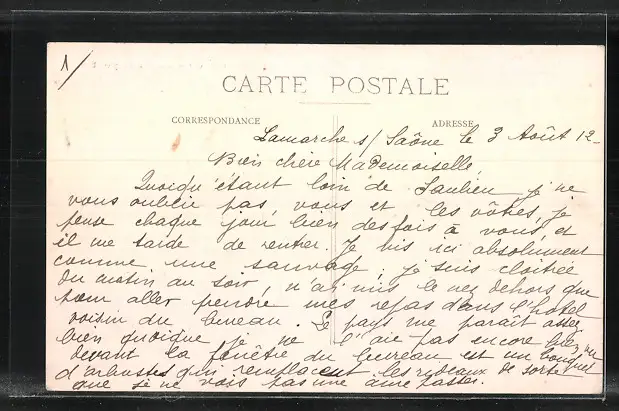 1/
CARTE POSTALE
CORRESPONDANCE
ADRESSE
Lamarche s/ Saône le 3 Août 12-
Bien chère Mademoiselle,
Quoiqu'étant loin de Saulieu je ne
vous oublie pas, vous et les vôtres, je
pense chaque jour bien des fois à vous, et
il me tarde de rentrer. Je vis ici absolument
comme une sauvage; je suis cloitrée
du matin au soir, n'ai mis le nez dehors que
pour aller prendre mes repas dans l'hôtel
voisin du bureau. Le pays me paraît assez
bien quoique je ne l'aie pas encore bien vu
devant la fenêtre du bureau est un bouquet
d'arbustes qui remplacent les rideaux de sorte
que je ne vois pas une âme passer.